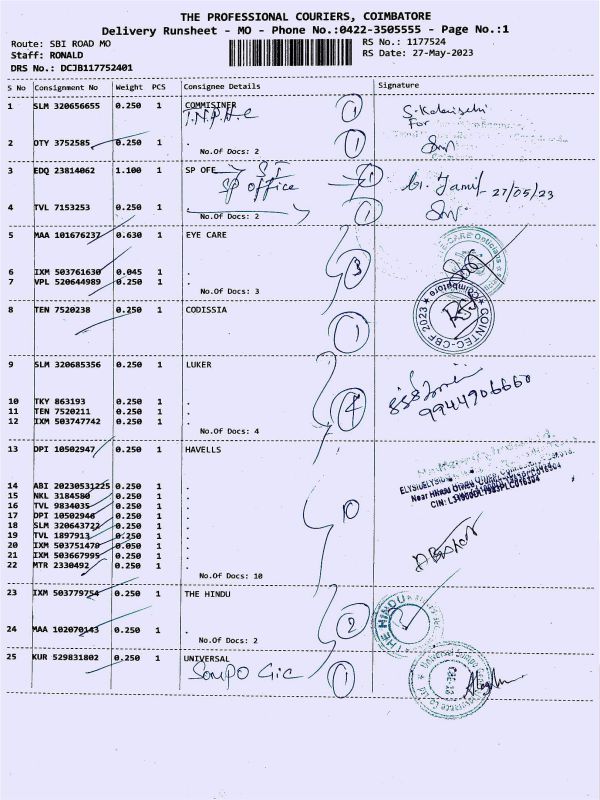 THE PROFESSIONAL COURIERS, COIMBATORE
Delivery Runsheet - MO - Phone No.:0422-3505555 - Page No.:1
Route: SBI ROAD MO RS No.: 1177524
Staff: RONALD RS Date: 27-May-2023
DRS No.: DCJB117752401
S No Consignment No Weight PCS Consignee Details Signature
1 SLM 320656655 0.250 1 COMMISINER
T.N.P.H.C 1
For
2 OTY 3752585 0.250 1 . 1
No.Of Docs: 2
3 EDQ 23814062 1.100 1 SP OFE
SP office 1 27/05/23
4 TVL 7153253 0.250 1 . 1
No.Of Docs: 2
5 MAA 101676237 0.630 1 EYE CARE
6 IXM 503761630 0.045 1 . 3
7 VPL 520644989 0.250 1 .
No.Of Docs: 3
8 TEN 7520238 0.250 1 CODISSIA
COINTEC-CBF 2023 Coimbatore
1
9 SLM 320685356 0.250 1 LUKER
10 TKY 863193 0.250 1 . 4 9944906660
11 TEN 7520211 0.250 1 .
12 IXM 503747742 0.250 1 .
No.Of Docs: 4
13 DPI 10502947 0.250 1 HAVELLS
14 ABI 20230531225 0.250 1 .
15 NKL 3184580 0.250 1 .
16 TVL 9834035 0.250 1 . 10
17 DPI 10502946 0.250 1 .
18 SLM 320643722 0.250 1 .
19 TVL 1897913 0.250 1 .
20 IXM 503751470 0.050 1 .
21 IXM 503667995 0.250 1 .
22 MTR 2330492 0.250 1 .
No.Of Docs: 10
23 IXM 503779754 0.250 1 THE HINDU
THE HINDU
24 MAA 102070143 0.250 1 . 2
No.Of Docs: 2
25 KUR 529831802 0.250 1 UNIVERSAL
Sompo Gic 1